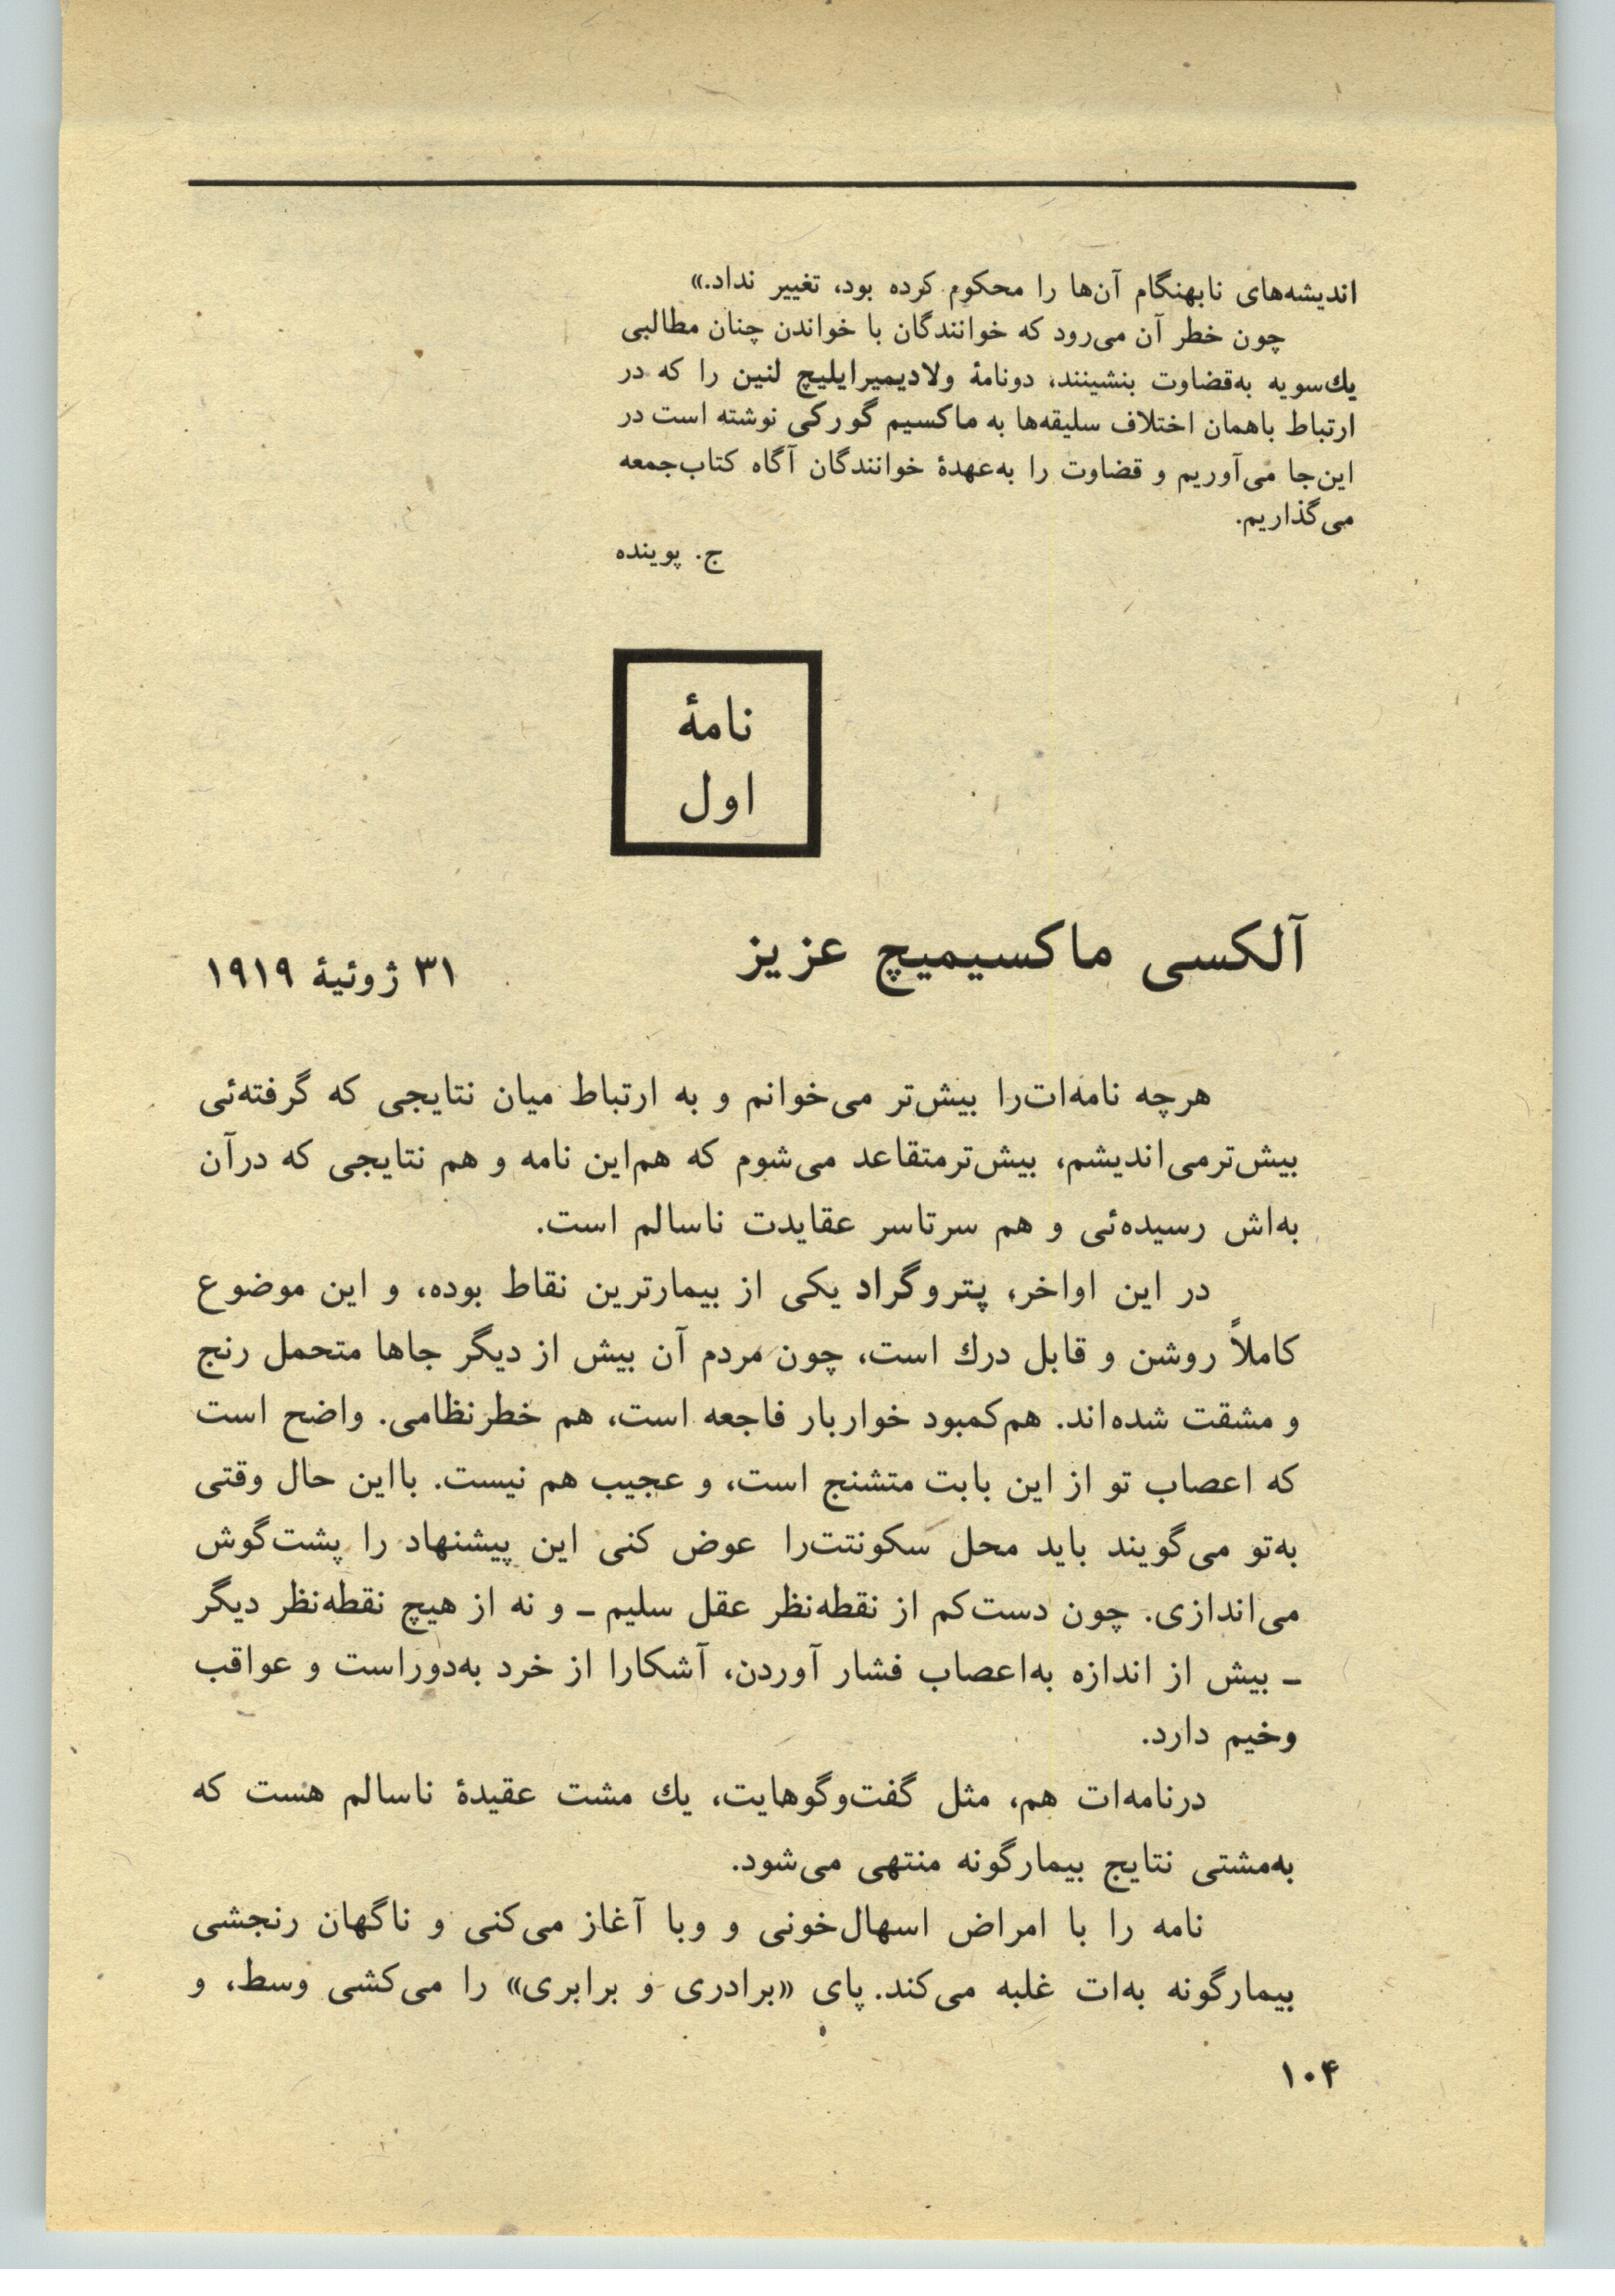 اندیشه‌های نابهنگام آن‌ها را محکوم کرده بود، تغییر نداد.»
چون خطر آن می‌رود که خوانندگان با خواندن چنان مطالبی
یك‌سویه به‌قضاوت بنشینند، دونامهٔ ولادیمیرایلیچ لنین را که در
ارتباط باهمان اختلاف سلیقه‌ها به ماکسیم گورکی نوشته است در
این‌جا می‌آوریم و قضاوت را به‌عهدهٔ خوانندگان آگاه کتاب‌جمعه
می‌گذاریم.
ج. پوینده
نامهٔ
اول
آلکسی ماکسیمیچ عزیز
۳۱ ژوئیهٔ ۱۹۱۹
هرچه نامه‌ات‌را بیش‌تر می‌خوانم و به ارتباط میان نتایجی که گرفته‌ئی
بیش‌ترمی‌اندیشم، بیش‌ترمتقاعد می‌شوم که هم‌این نامه و هم نتایجی که درآن
به‌اش رسیده‌ئی و هم سرتاسر عقایدت ناسالم است.
در این اواخر، پتروگراد یکی از بیمارترین نقاط بوده، و این موضوع
کاملاً روشن و قابل درك است، چون مردم آن بیش از دیگر جاها متحمل رنج
و مشقت شده‌اند. هم‌کمبود خواربار فاجعه است، هم خطرنظامی. واضح است
که اعصاب تو از این بابت متشنج است، و عجیب هم نیست. بااین حال وقتی
به‌تو می‌گویند باید محل سکونتت‌را عوض کنی این پیشنهاد را پشت‌گوش
می‌اندازی. چون دست‌کم از نقطه‌نظر عقل سلیم ـ و نه از هیچ نقطه‌نظر دیگر
ـ بیش از اندازه به‌اعصاب فشار آوردن، آشکارا از خرد به‌دوراست و عواقب
وخیم دارد.
درنامه‌ات هم، مثل گفت‌وگوهایت، یك مشت عقیدهٔ ناسالم هست که
به‌مشتی نتایج بیمارگونه منتهی می‌شود.
نامه را با امراض اسهال‌خونی و وبا آغاز می‌کنی و ناگهان رنجشی
بیمارگونه به‌ات غلبه می‌کند. پای «برادری و برابری» را می‌کشی وسط، و
۱۰۴